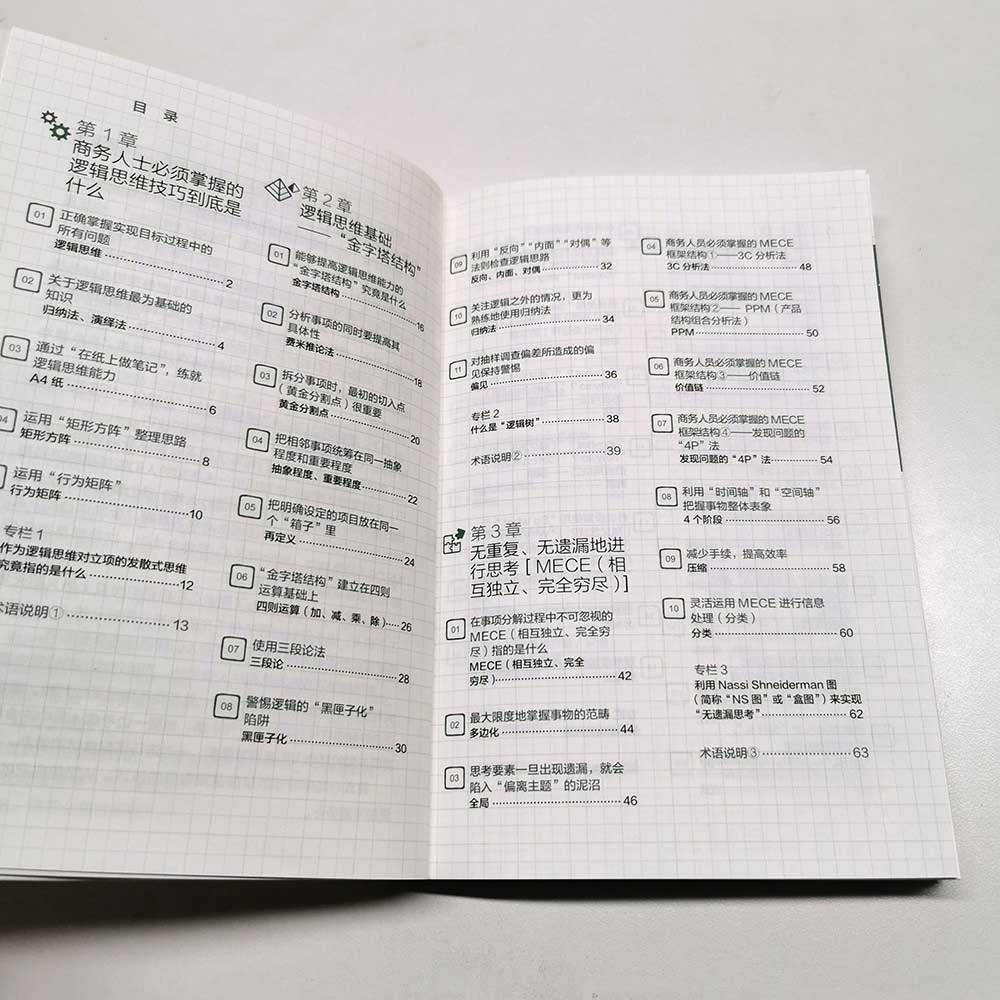 目 录
第 1 章
商务人士必须掌握的
逻辑思维技巧到底是
什么
01 正确掌握实现目标过程中的
所有问题
逻辑思维 2
02 关于逻辑思维最为基础的
知识
归纳法、演绎法 4
03 通过“在纸上做笔记”，练就
逻辑思维能力
A4 纸 6
04 运用“矩形方阵”整理思路
矩形方阵 8
运用“行为矩阵”
行为矩阵 10
专栏 1
作为逻辑思维对立项的发散式思维
究竟指的是什么 12
术语说明① 13
第 2 章
逻辑思维基础
——“金字塔结构”
01 能够提高逻辑思维能力的
“金字塔结构”究竟是什么
金字塔结构 16
02 分析事项的同时要提高其
具体性
费米推论法 18
03 拆分事项时，最初的切入点
（黄金分割点）很重要
黄金分割点 20
04 把相邻事项统筹在同一抽象
程度和重要程度
抽象程度、重要程度 22
05 把明确设定的项目放在同一
个“箱子”里
再定义 24
06 “金字塔结构”建立在四则
运算基础上
四则运算（加、减、乘、除） 26
07 使用三段论法
三段论 28
08 警惕逻辑的“黑匣子化”
陷阱
黑匣子化 30
09 利用“反向”“内面”“对偶”等
法则检查逻辑思路
反向、内面、对偶 32
10 关注逻辑之外的情况，更为
熟练地使用归纳法
归纳法 34
11 对抽样调查偏差所造成的偏
见保持警惕
偏见 36
专栏 2
什么是“逻辑树” 38
术语说明② 39
第 3 章
无重复、无遗漏地进
行思考［MECE（相
互独立、完全穷尽）］
01 在事项分解过程中不可忽视的
MECE（相互独立、完全穷
尽）指的是什么
MECE（相互独立、完全
穷尽） 42
02 最大限度地掌握事物的范畴
多边化 44
03 思考要素一旦出现遗漏，就会
陷入“偏离主题”的泥沼
全局 46
04 商务人员必须掌握的 MECE
框架结构①——3C 分析法
3C 分析法 48
05 商务人员必须掌握的 MECE
框架结构2—— PPM（产品
结构组合分析法）
PPM 50
06 商务人员必须掌握的 MECE
框架结构3——价值链
价值链 52
07 商务人员必须掌握的 MECE
框架结构④——发现问题的
“4P”法
发现问题的“4P”法 54
08 利用“时间轴”和“空间轴”
把握事物整体表象
4 个阶段 56
09 减少手续，提高效率
压缩 58
10 灵活运用 MECE 进行信息
处理（分类）
分类 60
专栏 3
利用 Nassi Shneiderman 图
（简称“NS 图”或“盒图”）来实现
“无遗漏思考” 62
术语说明③ 63